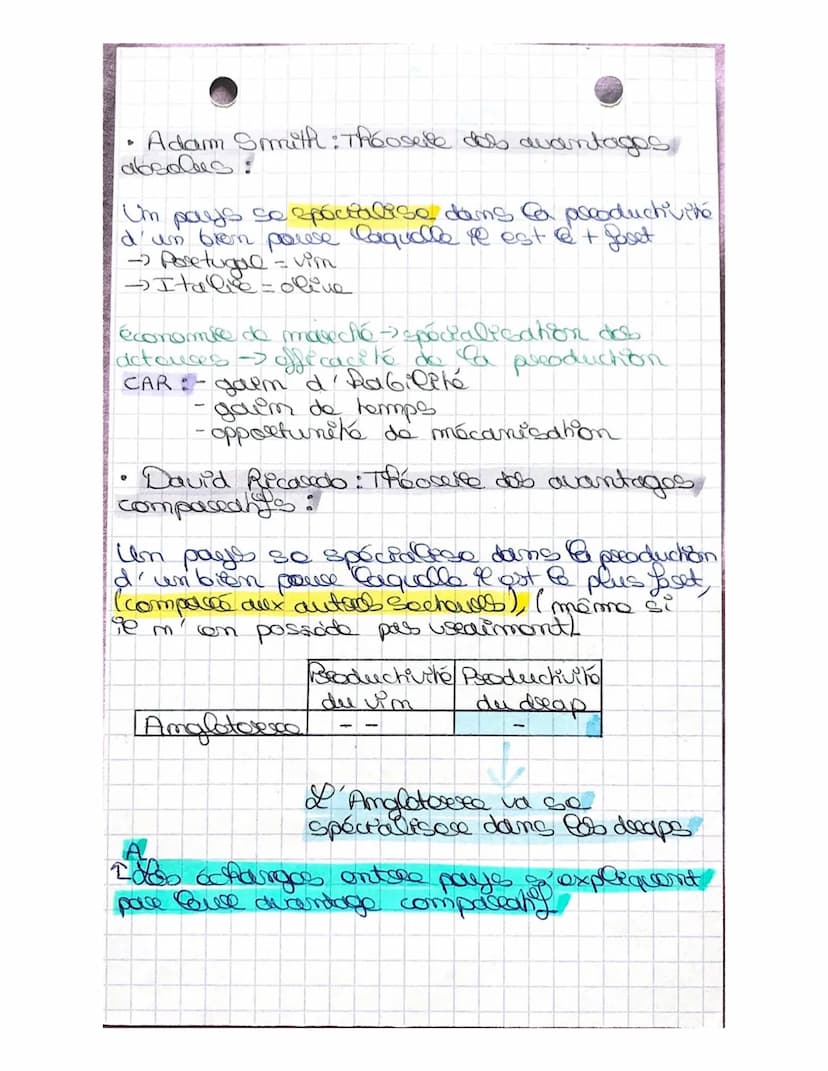 • Adam Smith : Théorie des avantages
absolus :
Un pays se spécialise dans la productivité
d'un bien pour laquelle il est le + fort
→ Portugal = vin
→ Italie = olive
économie de marché → spécialisation des
acteurs → efficacité de la production
CAR : - gain d'habilité
- gain de temps
- opportunité de mécanisation
• David Ricardo : Théorie des avantages
comparatifs :
Un pays se spécialise dans la production
d'un bien pour laquelle il est le plus fort,
(comparé aux autres secteurs), (même si
il n'en possède pas vraiment)
Productivité Productivité
du vin du drap
Angleterre -- -
L'Angleterre va se
spécialiser dans les draps
A
↑ les échanges entre pays s'expliquent
par leur avantage comparatif